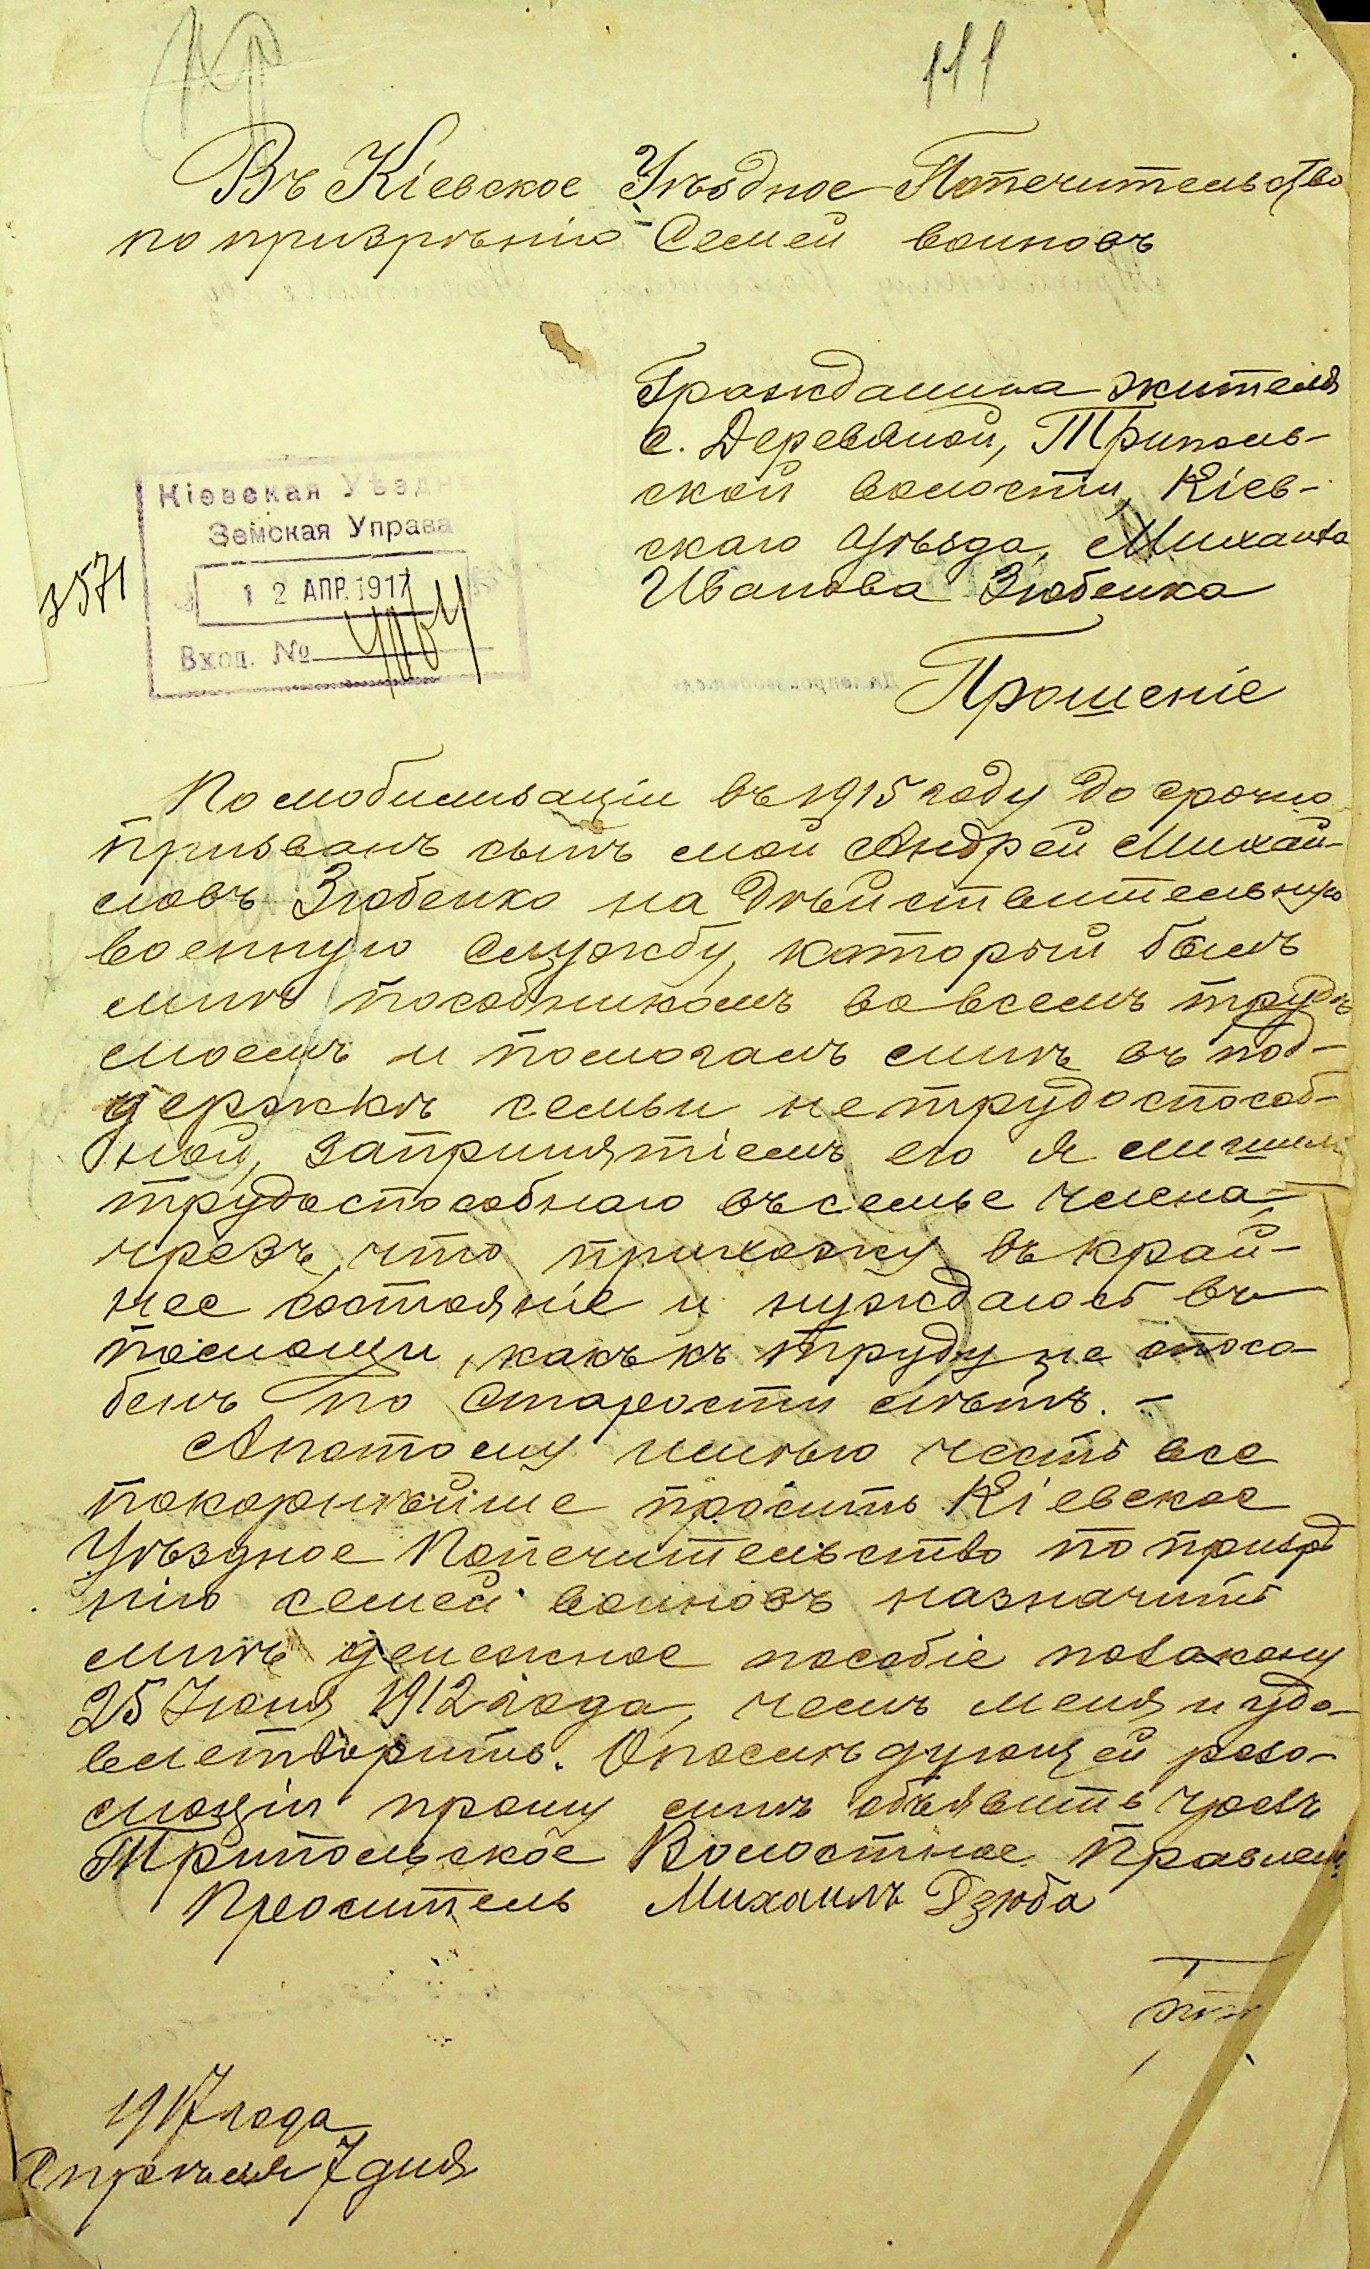 111
Въ Кіевское Уѣздное Попечительство
по призрѣнію Семей воиновъ
Гражданина жителя
с. Деревяной, Триполь-
ской волости, Кіев-
скаго уѣзда, Михаила
Иванова Зюбенка
Кіевская Уѣздн
Земская Управа
12 АПР. 1917
Вход. №
3571
Прошеніе
По мобилизаціи въ 1915 году до срочно
призванъ сынъ мой Андрей Михай-
ловъ Зюбенко на дѣйствительную
военную службу, который былъ
мнѣ пособникомъ во всемъ трудѣ
моемъ и помогалъ мнѣ въ под-
держкѣ семьи нетрудоспособ-
ной, запринятіемъ его я лишился
трудоспособнаго въ семье члена
чрезъ, что прихожу въ край-
нее состояніе и нуждаюсь въ
помощи, какъ къ труду не спосо-
бенъ по старости лѣтъ. -
А потому имѣю честь все
покорнѣйше просить Кіевское
Уѣздное Попечительство по призрѣ
нію семей воиновъ назначить
мнѣ денежное пособіе по закону
25 Июня 1912 года, чемъ меня и удо-
влетворить. О послѣдующей резо-
люціи прошу мнѣ объявить чрезъ
Трипольское Волостное Правленіе
Проситель Михаилъ Дзюба
1917 года
Апрѣля 7 дня